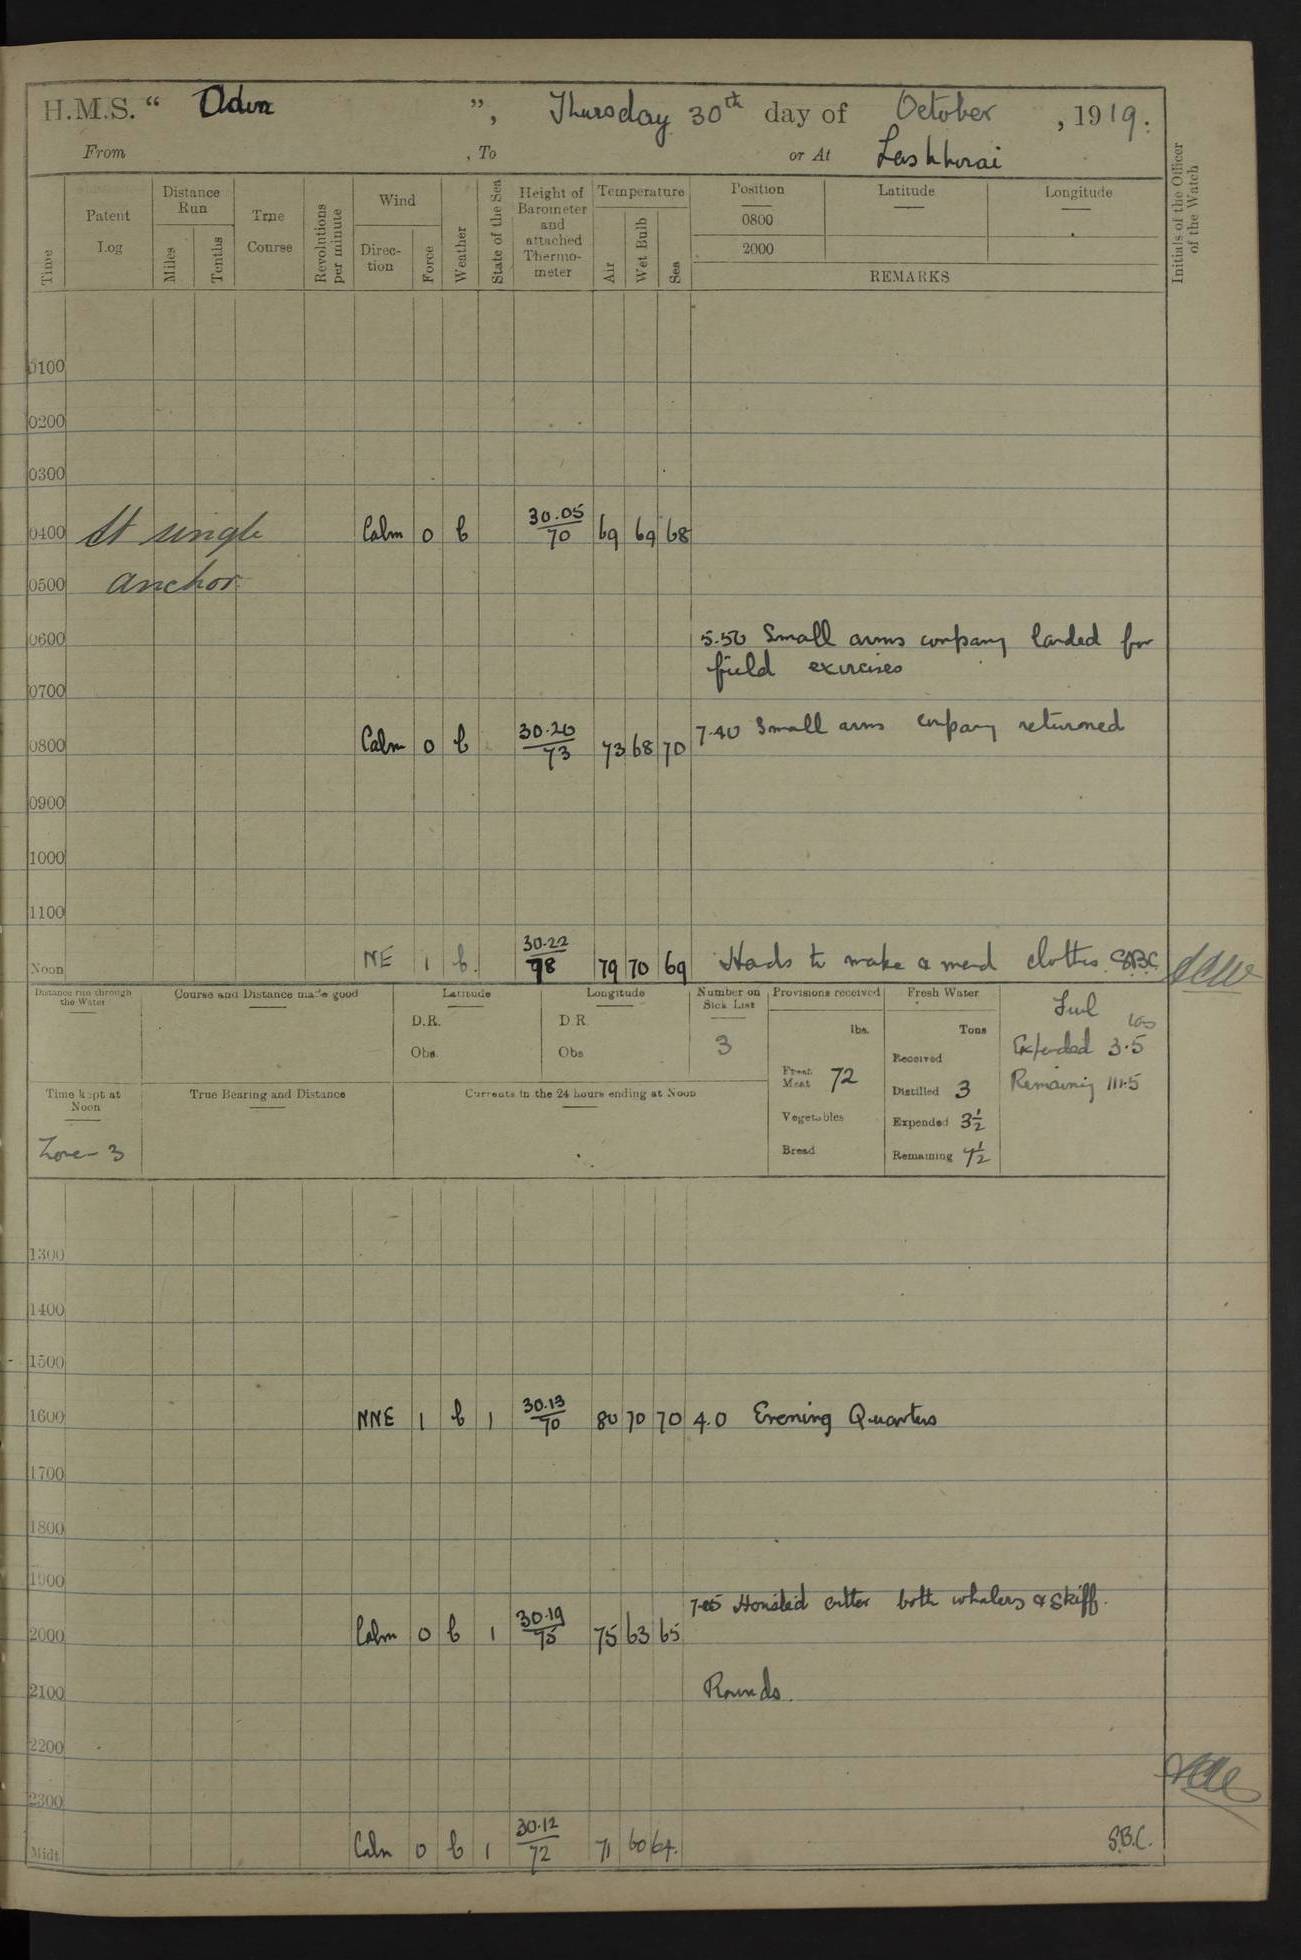 H.M.S. “ Odin ”, Thursday 30th day of October , 1919.
From , To or At Lashkorai
Time
Patent Log
Distance Run
Miles
Tenths
True Course
Revolutions per minute
Wind
Direction
Force
Weather
State of the Sea
Height of Barometer and attached Thermometer
Temperature
Air
Wet Bulb
Sea
Position
Latitude
Longitude
0800
2000
REMARKS
Initials of the Officer of the Watch
0100
0200
0300
0400 At single Calm 0 b 30.05/70 69 69 68
0500 anchor.
0600 5.50 Small arms company landed for
field exercises
0700
0800 Calm 0 b 30.20/73 73 68 70 7.40 Small arms company returned
0900
1000
1100
Noon NE 1 b. 30.22/78 79 70 69 Hands to make & mend clothes. S.B.C.
Distance run through the Water
Course and Distance made good
Latitude
D.R.
Obs.
Longitude
D R
Obs
Number on Sick List
3
Provisions received
lbs.
Fresh Meat 72
Vegetables
Bread
Fresh Water
Tons
Received
Distilled 3
Expended 3½
Remaining 7½
Fuel
Expended 3.5
Remaining 111.5
Time kept at Noon
Zone - 3
True Bearing and Distance
Currents in the 24 hours ending at Noon
1300
1400
1500
1600 NNE 1 b 1 30.13/70 80 70 70 4.0 Evening Quarters
1700
1800
1900
7.05 Hoisted cutter both whalers & skiff.
2000 Calm 0 b 1 30.19/75 75 63 65
2100 Rounds.
2200
2300
Midt. Calm 0 b 1 30.12/72 71 60 64. S.B.C.